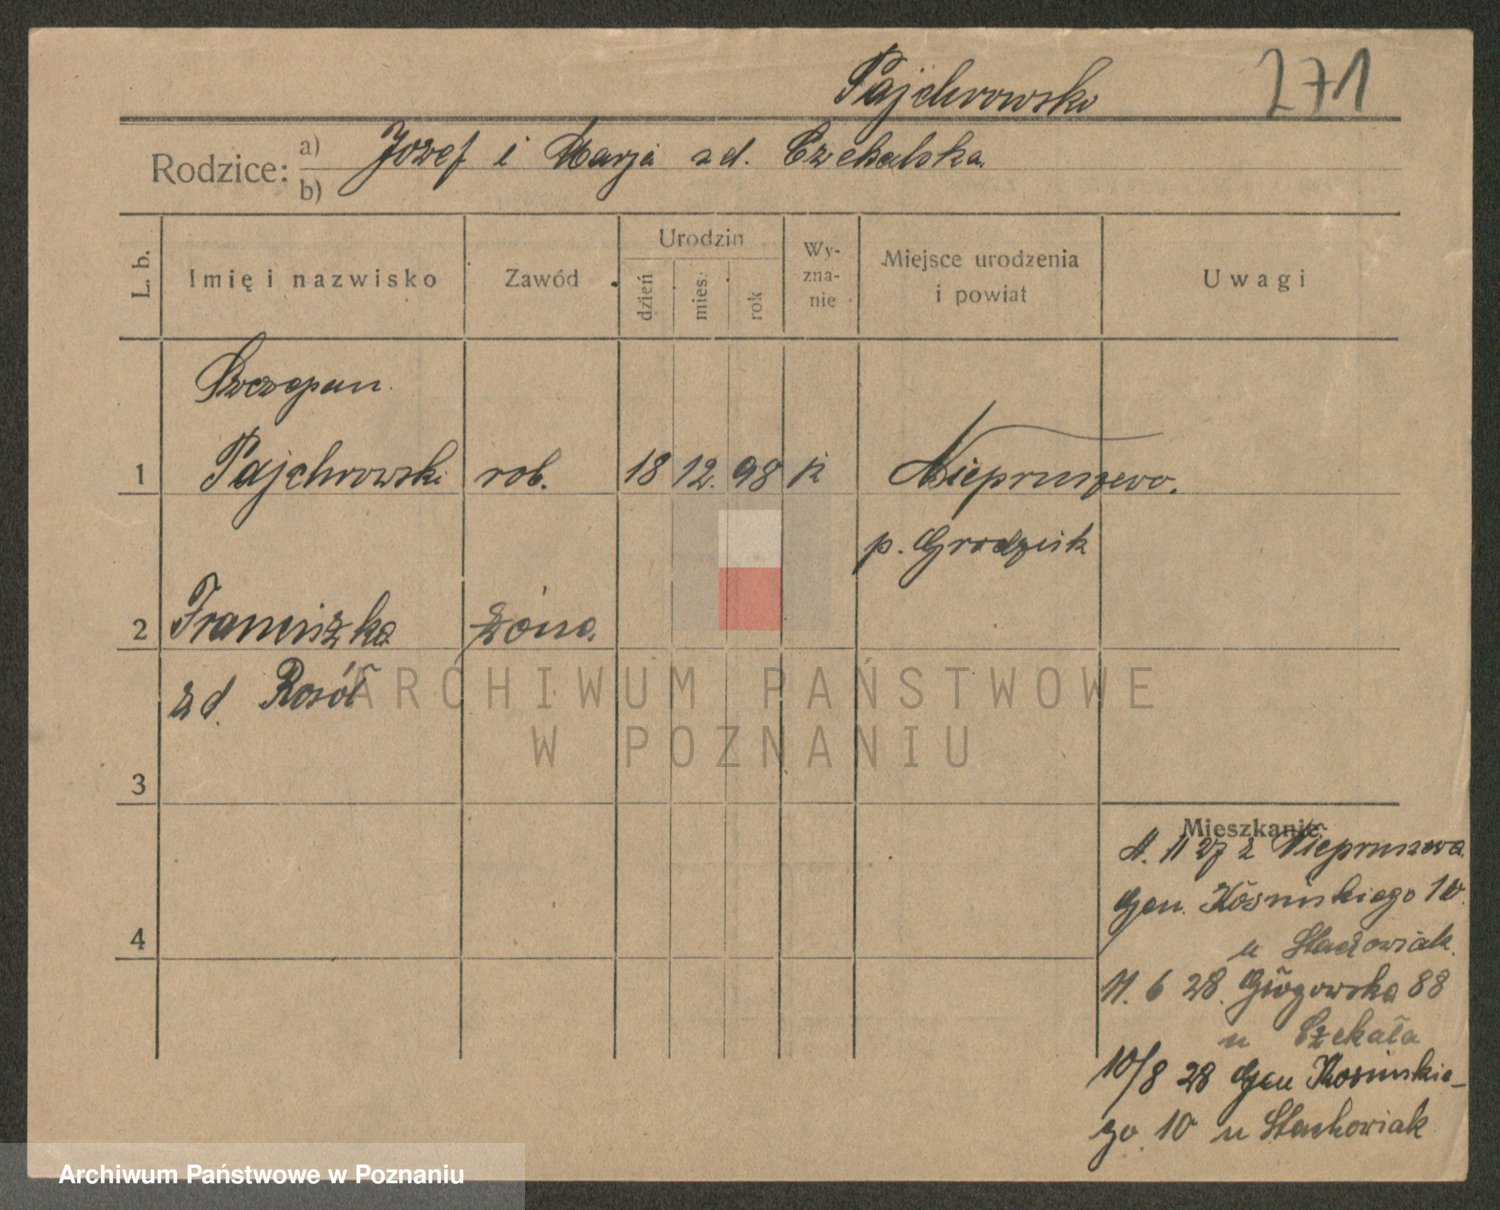 Pajchrowski 271
Rodzice: a) Józef i Marja zd. Czekalska
b)
L. b. Imię i nazwisko Zawód Urodzin dzień mies. rok Wy-zna-nie Miejsce urodzenia i powiat Uwagi
Szczepan
1 Pajchrowski rob. 18 12. 98 k Niepruszewo.
p. Grodzisk
2 Franciszka żona.
zd. Rosół
ARCHIWUM PAŃSTWOWE
W POZNANIU
3
Mieszkanie
11 27 z Niepruszewa
Gen. Kosińskiego 10.
4
u Stachowiak.
11. 6 28. Głogowska 88
u Czekała
10/8 28 Gen Kosińskie-
go 10 u Stachowiak
Archiwum Państwowe w Poznaniu